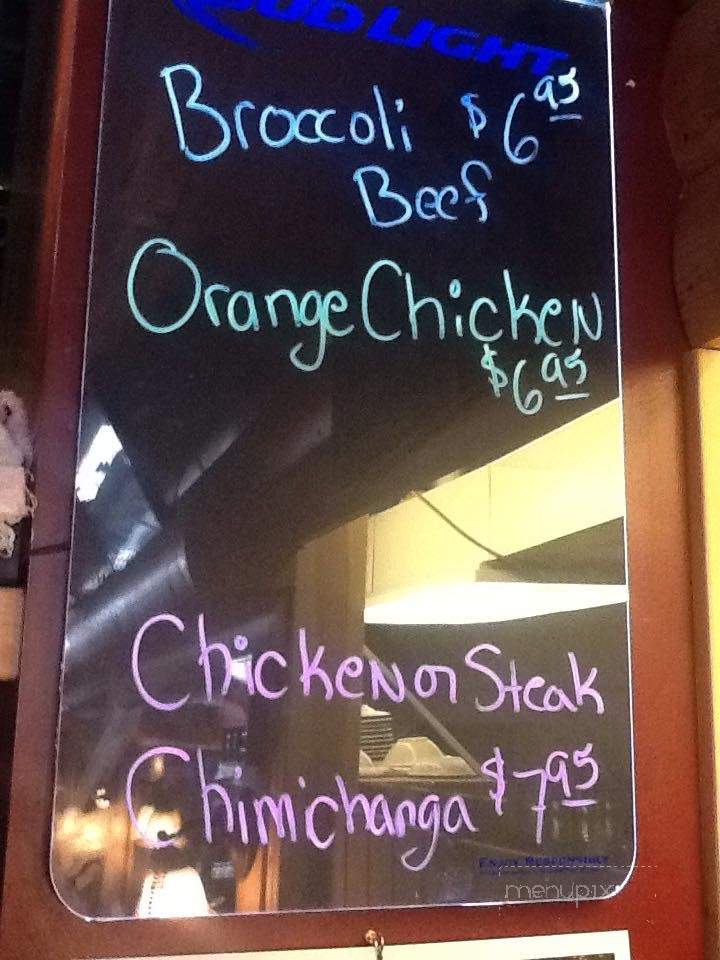 BUD LIGHT
Broccoli $6 95
Beef
Orange Chicken
$6 95
Chicken or Steak
Chimichanga $7 95
ENJOY RESPONSIBLY
menupix